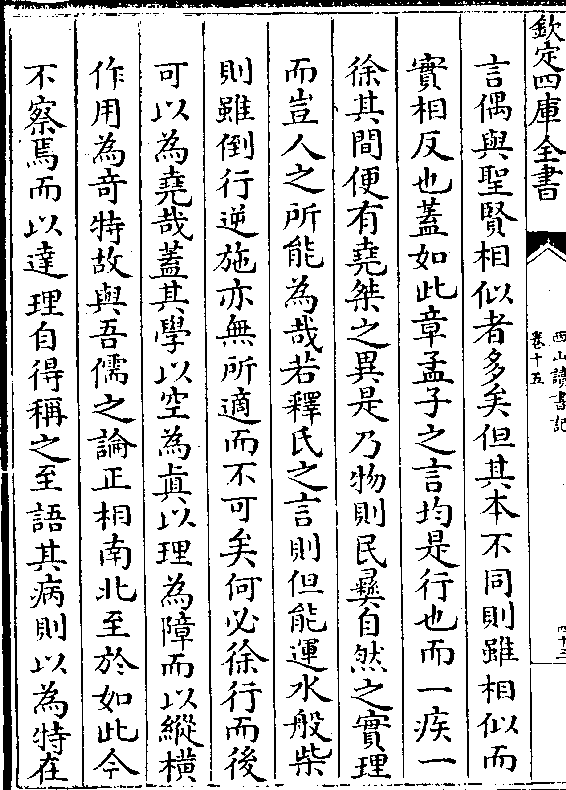 欽定四庫全書
西山讀書記
卷十五
四十三
言偶與聖賢相似者多矣但其本不同則雖相似而
實相反也蓋如此章孟子之言均是行也而一疾一
徐其間便有堯桀之異是乃物則民彛自然之實理
而豈人之所能為哉若釋氏之言則但能運水般柴
則雖倒行逆施亦無所適而不可矣何必徐行而後
可以為堯哉蓋其學以空為真以理為障而以縱橫
作用為奇特故與吾儒之論正相南北至於如此今
不察焉而以達理自得稱之至語其病則以為特在